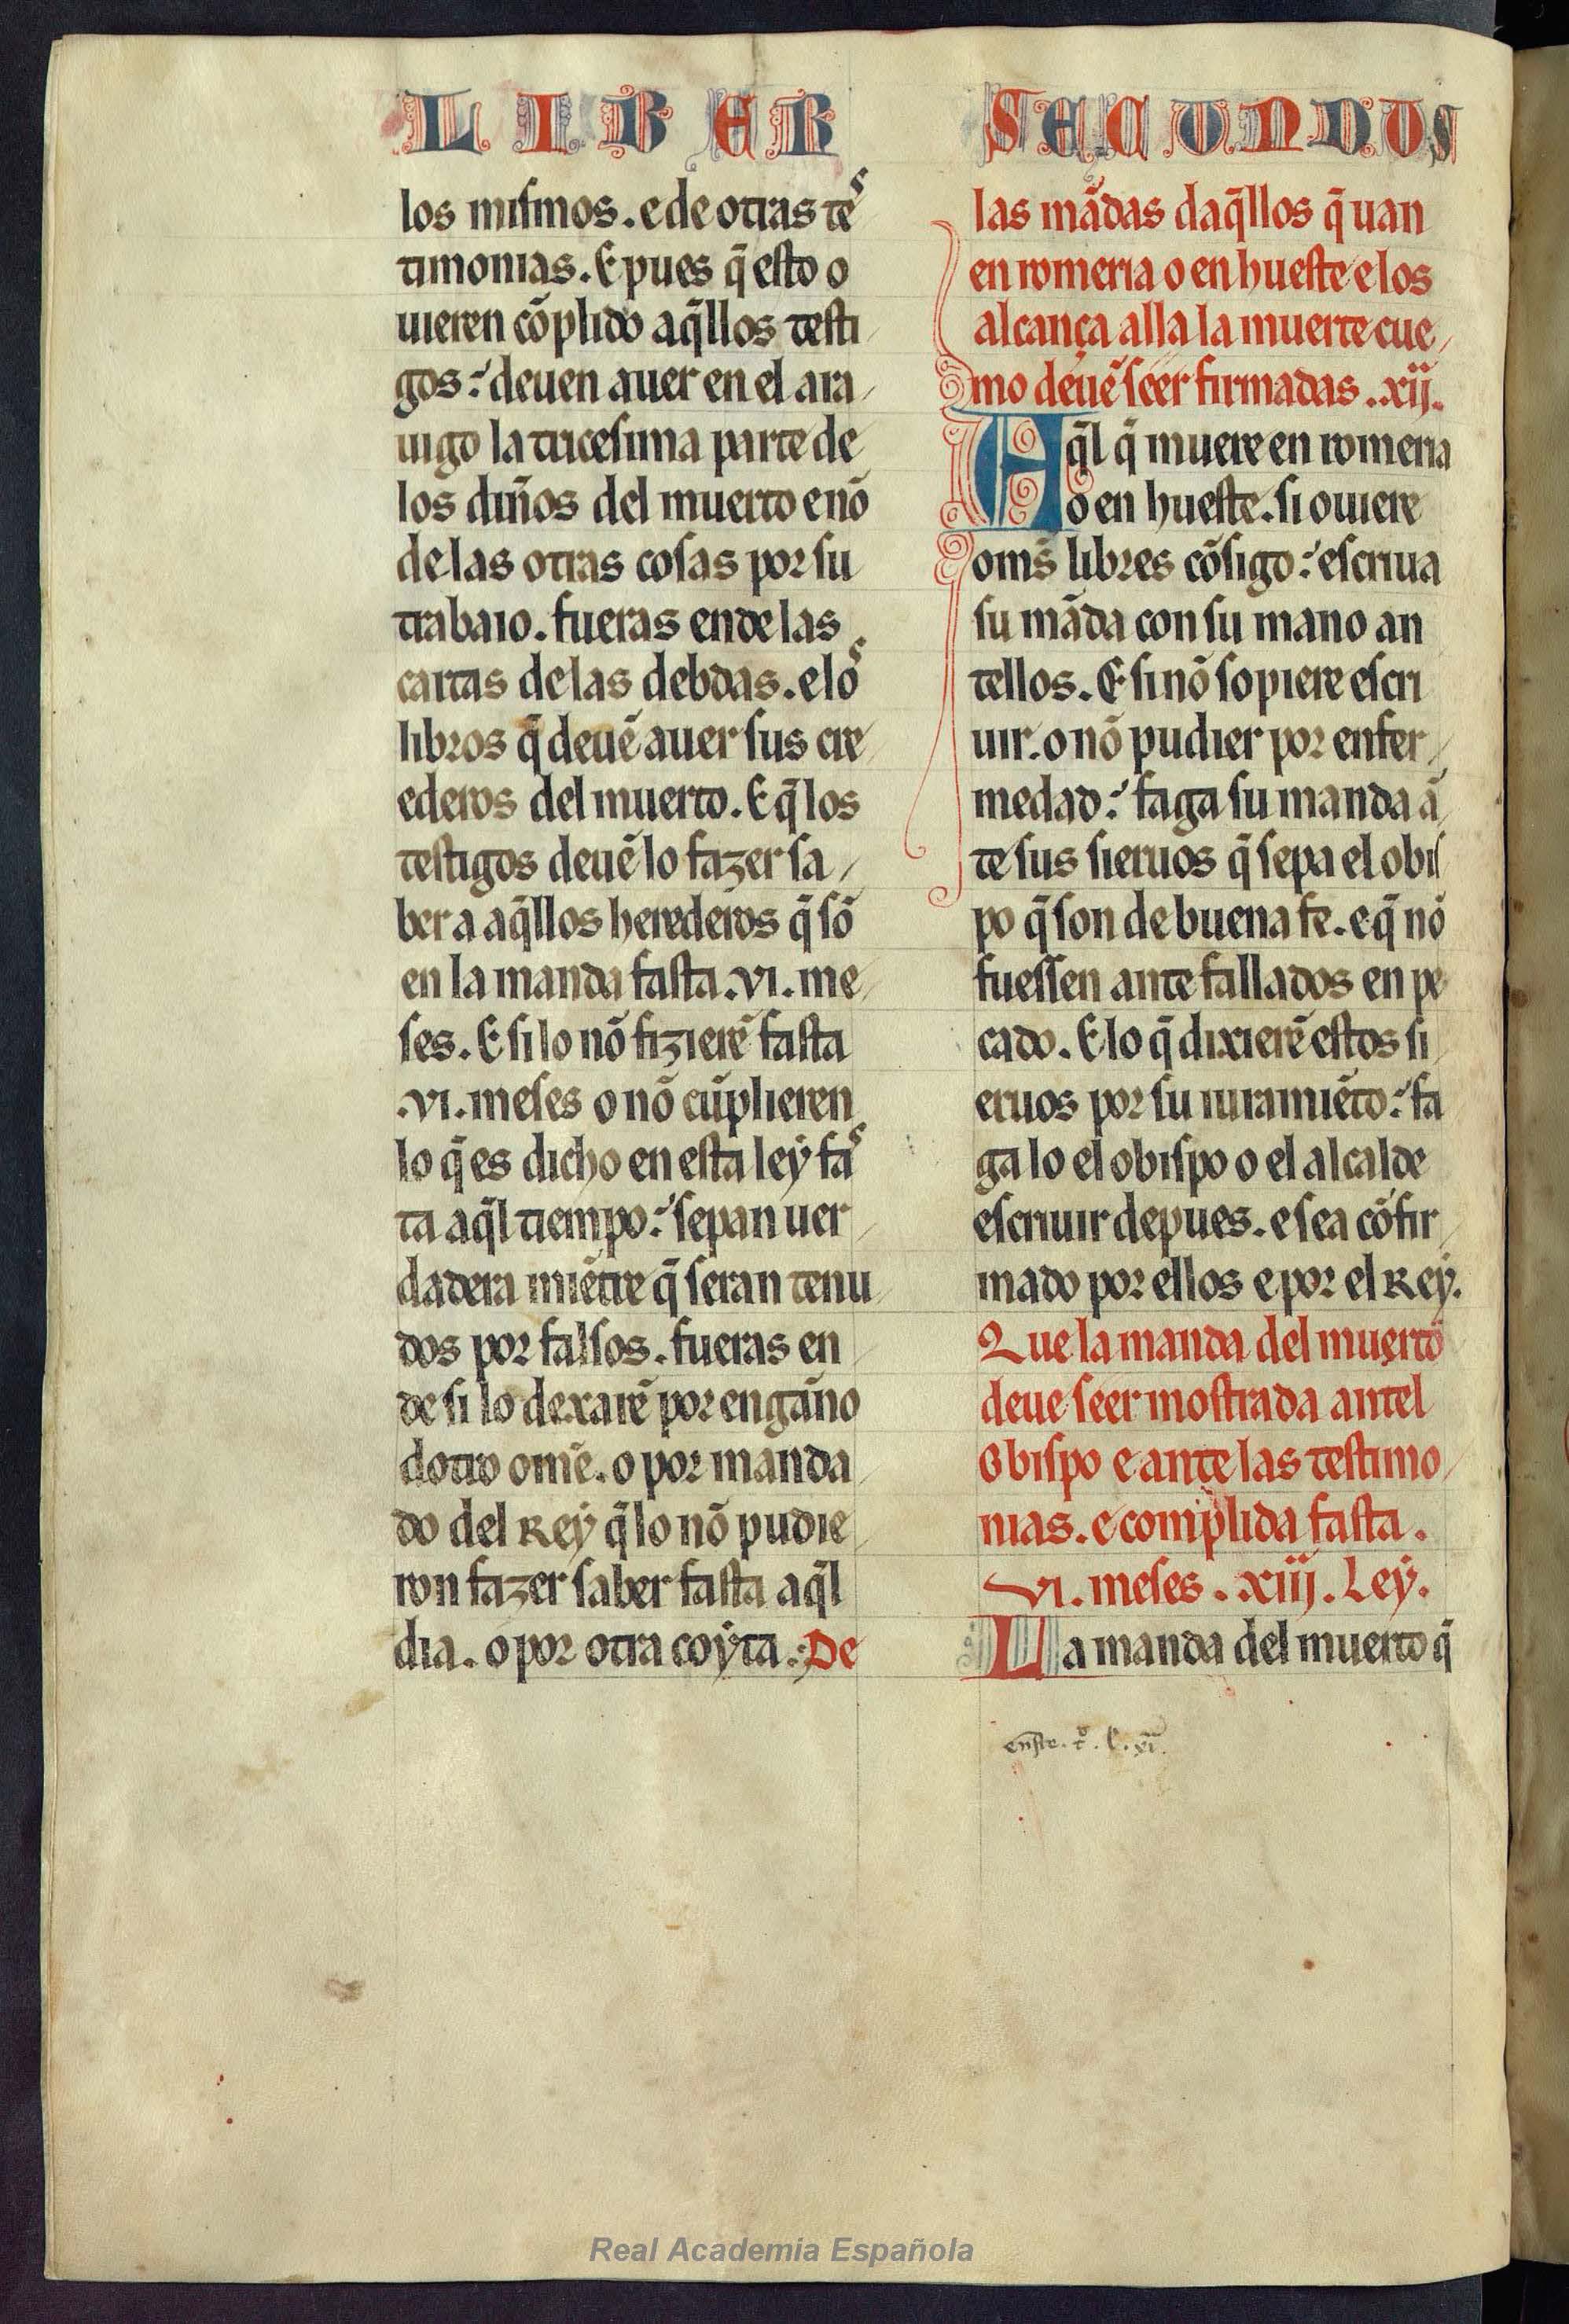 LIBER
los mismos. e de otras teˢ
timonias. E pues q̃ esto o
uieren cõplido aq̃llos testi
gos: deuen auer en el ara
uigo la tricesima parte de
los diños del muerto e nõ
de las otras cosas por su
trabaio. fueras ende las
cartas de las debdas. e loˢ
libros q̃ deuẽ auer sus ere
ederos del muerto. E q̃ los
testigos deuẽ lo fazer sa
ber a aq̃llos herederos q̃ sõ
en la manda fasta .vi. me
ses. E si lo nõ fizierẽ fasta
.vi. meses o nõ cũplieren
lo q̃ es dicho en esta ley faˢ
ta aq̃l tiempo: sepan uer
dadera miẽtre q̃ seran tenu
dos por falsos. fueras en
de si lo dexarẽ por enganno
dotro omẽ. o por manda
do del Rey q̃ lo nõ pudie
ron fazer saber fasta aq̃l
dia. o por otra coyta. De
SECUNDUS
las mãdas daq̃llos q̃ uan
en romeria o en hueste e los
alcança alla la muerte cue
mo deuẽ seer firmadas .xij.
Aq̃l q̃ muere en romeria
o en hueste. si ouiere
oms̃ libres cõsigo: escriua
su mãda con su mano an
tellos. E si nõ sopiere escri
uir. o nõ pudier por enfer
medad: faga su manda ã
te sus sieruos q̃ sepa el obis
po q̃ son de buena fe. e q̃ nõ
fuessen ante fallados en pe
cado. E lo q̃ dixierẽ estos si
eruos por su iuramiẽto: fa
ga lo el obispo o el alcalde
escriuir depues. e sea cõfir
mado por ellos e por el Rey.
Que la manda del muerto
deue seer mostrada antel
Obispo e ante las testimo
nias. e complida fasta .
vi. meses. xiij. Ley.
La manda del muerto q̃
Real Academia Española